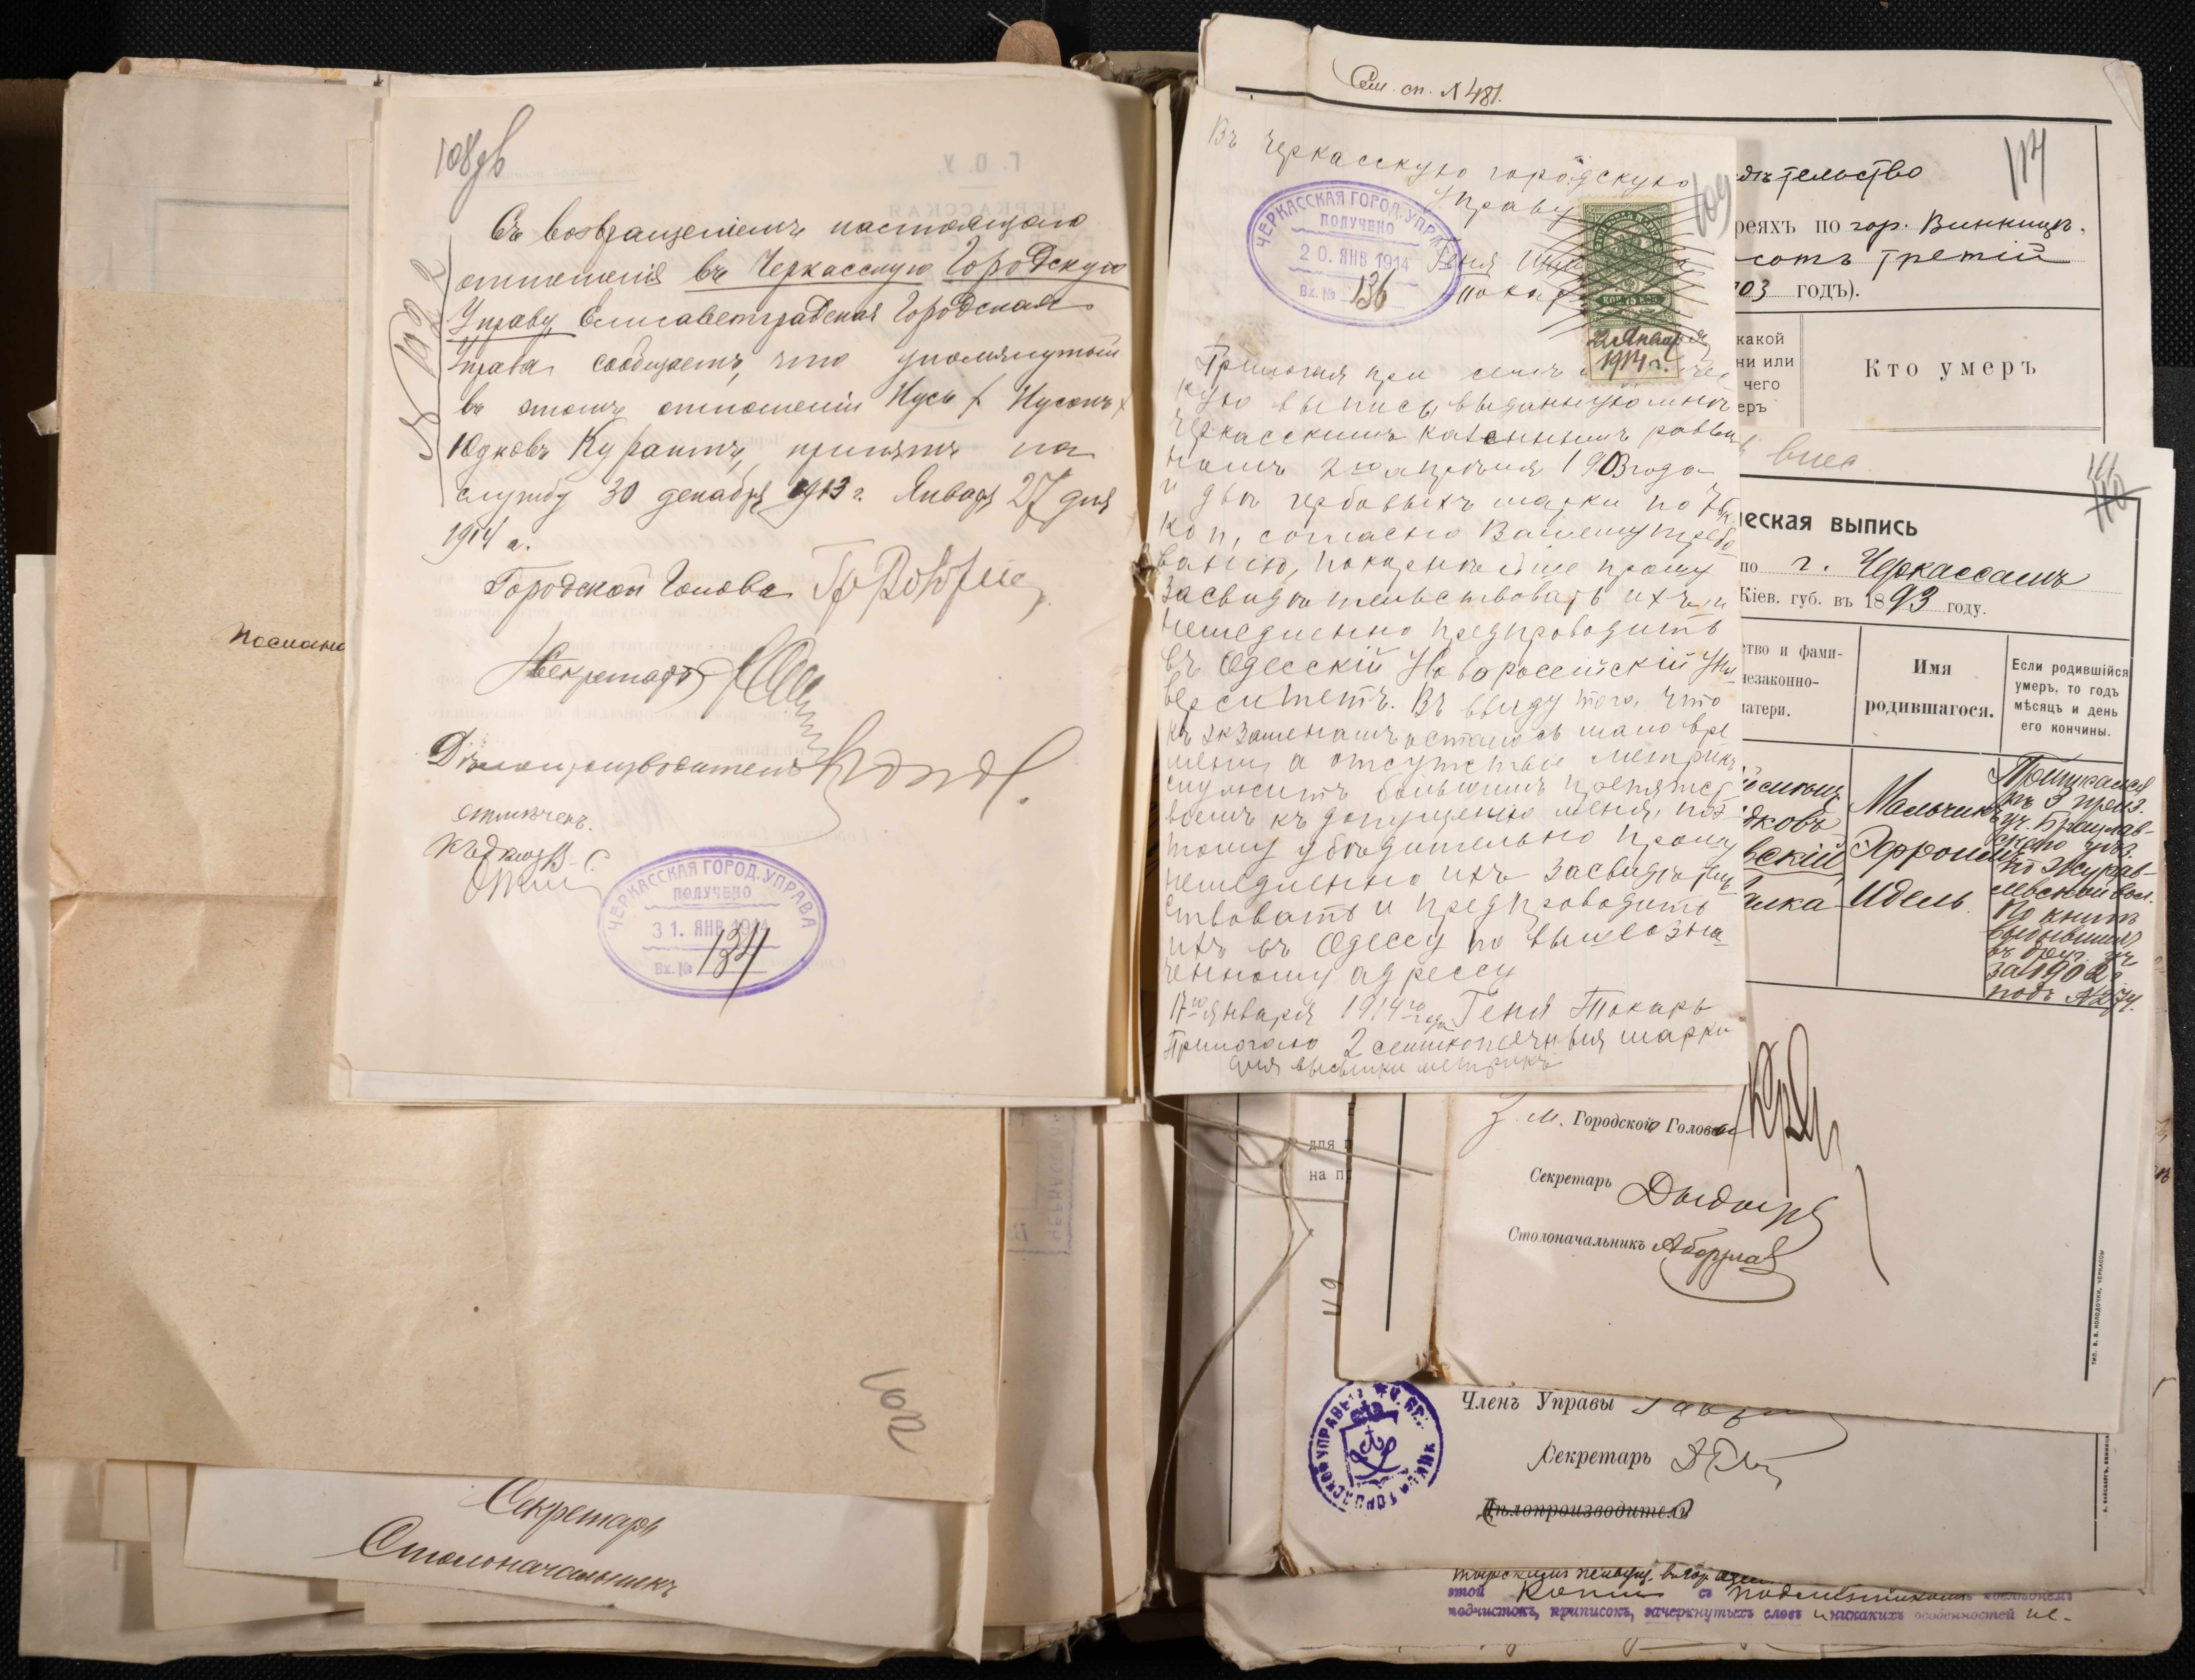 108 об
Съ возвращеніемъ настоящаго
отношенія въ Черкасскую Городскую
Управу Елисаветградская Городская
Управа сообщаетъ, что упомянутый
въ этомъ отношеніи Нусь / Нусонъ /
Юдковъ Курантъ, принятъ на
службу 30 декабря 1913 г. Января 27 дня
1914 г.
Городской Голова
Секретарь
Дѣлопроизводитель
отмѣченъ.
ЧЕРКАССКАЯ ГОРОД. УПРАВА
ПОЛУЧЕНО
31. ЯНВ 1914
Вх. № 134
Послано
102
Секретарь
Столоначальникъ
Сем. сп. № 481.
109
Въ Черкасскую городскую
Управу
ЧЕРКАССКАЯ ГОРОД. УПР
ПОЛУЧЕНО
20. ЯНВ 1914
Вх. № 136
Геня
Токар
КОП 75 КОП
Января
1914 г.
Прилагая при семъ
кую выпись, выданную мнѣ
Черкасскимъ казеннымъ равви
номъ 2го апрѣля 1903 года
и двѣ гербовыхъ марки по 75
коп, согласно Вашему требо
ванію, покорнѣйше прошу
засвидѣтельствовать ихъ и
немедленно препроводить
въ Одесскій Новороссійскій Уни
верситетъ. Въ виду того, что
къ экзаменамъ осталось мало вре
мени, а отсутствіе метрик
служитъ большимъ препятст
віемъ къ допущенію меня, поэ
тому убѣдительно прошу
немедленно ихъ засвидѣтель
ствовать и предпроводить
ихъ въ Одессу по вышеозна
ченному адрессу
17го января 1914го года Геня Токарь
Прилагаю 2 семикопеечныя марки
для высылки метрикъ
117
дѣтельство
реяхъ по гор. Винницѣ.
сотъ третій
03 годъ).
какой
ни или
чего
еръ
Кто умеръ
111
110
ческая выпись
по г. Черкассамъ
Кіев. губ. въ 1893 году.
тво и фами-
незаконно-
матери.
Имя
родившагося.
Если родившійся
умеръ, то годъ
мѣсяцъ и день
его кончины.
дковъ
вскій
Мальчикъ
Эфроимъ
Идель
Приписался
къ 3 приз.
уч. Брацлав-
скаго уѣз.
по Журав-
левской вол.
По книгѣ
за 1902 г
подъ № 274.
З. М. Городского Головы
Секретарь
Столоначальникъ
для п
на пр
119
ТИП. В. В. КОЛОДОЧКИ, ЧЕРКАССЫ
Членъ Управы
Секретарь
Дѣлопроизводитель
этой Копіи съ подлинникомъ
подчистокъ, приписокъ, зачеркнутыхъ словъ и никакихъ особенностей не-